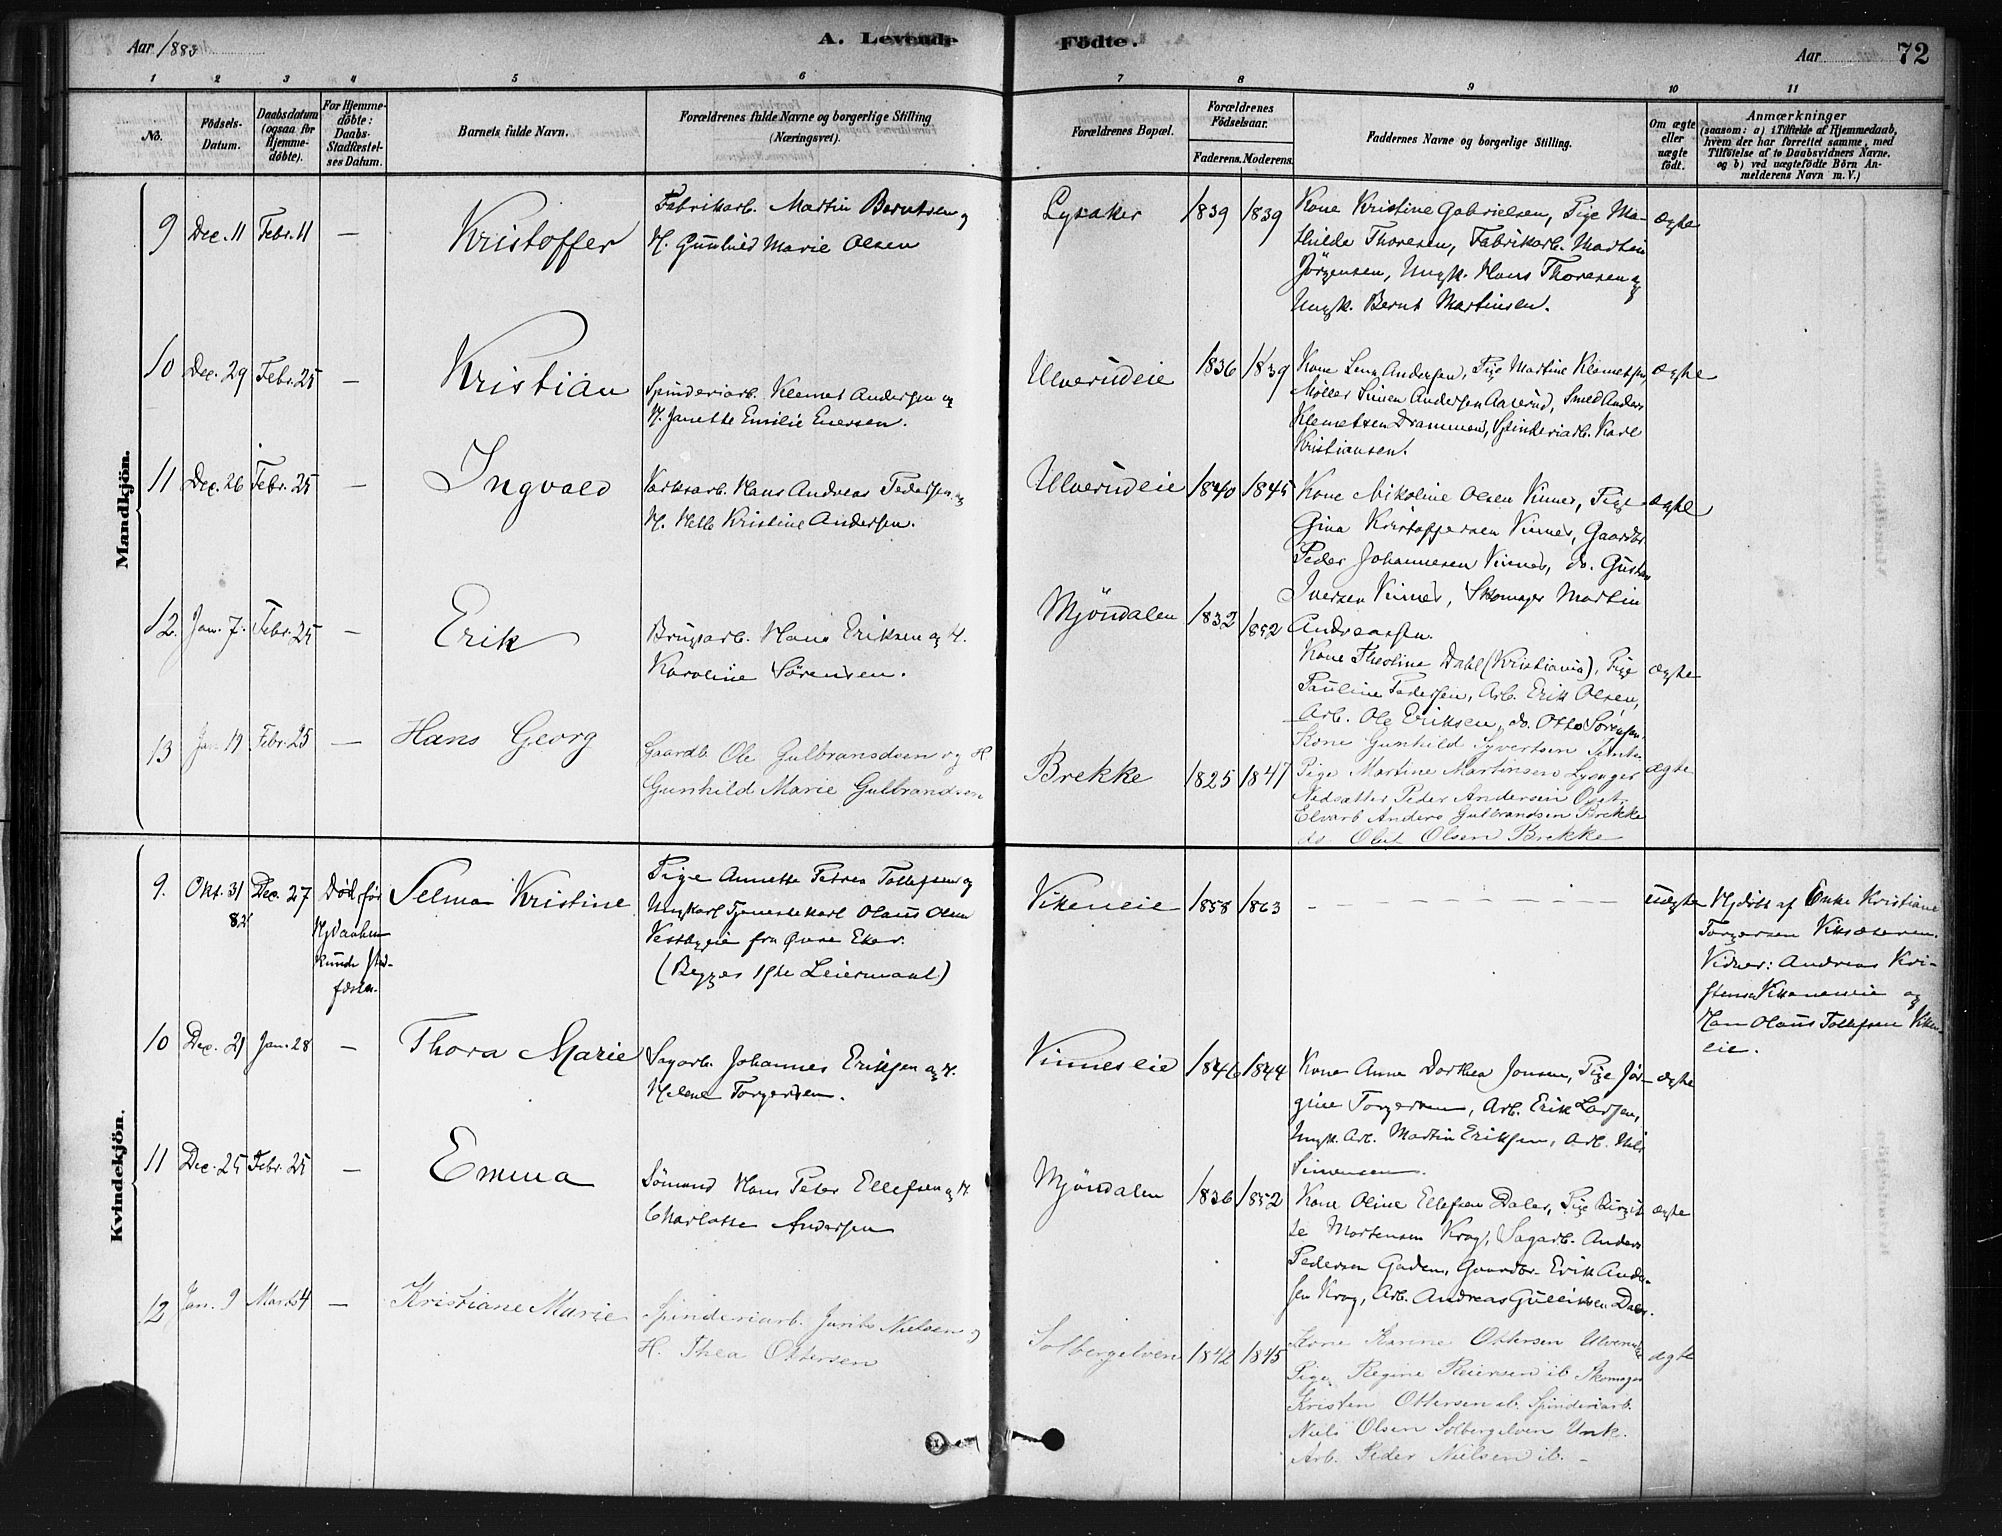 Aar 1883
A. Levende Fødte.
Aar
72
1 2 3 4 5 6 7 8 9 10 11
No.
Fødsels-Datum.
Daabsdatum (ogsaa for Hjemme-døbte).
For Hjemme-døbte: Daabs-Stadfæstel-ses Datum.
Barnets fulde Navn.
Forældrenes fulde Navne og borgerlige Stilling (Næringsvei).
Forældrenes Bopæl.
Forældrenes Fødselsaar.
Faderens. Moderens.
Faddernes Navne og borgerlige Stilling.
Om ægte eller uægte født.
Anmærkninger
(saasom: a) i Tilfælde af Hjemmedaab, hvem der har forrettet samme, med Tilføielse af to Daabsvidners Navne, og b) ved uægtefødte Børn An-melderens Navn m. V.)
Mandkjön.
9 Dec. 11 Febr. 11 — Kristoffer
Fabrikarb. Martin Berntsen og
H. Gunhild Marie Olsen
Lysaker 1839 1839
Kone Kristine Gabrielsen, Pige Ma-
thilde Thoresen, Fabrikarb. Martin
Jörgensen, Ungk. Hans Thoresen og
Ungk. Bernt Martinsen.
ægte
10 Dec. 29 Febr. 25 — Kristian
Spinderiarb. Klemet Andersen og
H. Janette Emilie Eversen.
Ulverudeie 1836 1839
Kone Lena Andersen, Pige Martine Klemetsen,
Møller Simen Andersen Aaserud, Smed Anders
Klemetsen Drammen, Spinderiarb. Karl
Kristiansen.
ægte
11 Dec. 26 Febr. 25 — Ingvald
Værksarb. Hans Andreas Pedersen og
H. Helle Kristine Andersen.
Ulverudeie 1840 1845
Kone Nikoline Olsen Vinnes, Pige
Gina Kristoffersen Vinnes, Gaardbr.
Peder Johannesen Vinnes, do. Gustav
Iversen Vinnes, Skomager Martin
Andreassen.
ægte
12. Jan. 7. Febr. 25 — Erik
Brugsarb. Hans Eriksen og H.
Karoline Sörensen.
Mjöndalen 1832 1852
Kone Theoline Dahl (Kristiania), Pige
Pauline Pedersen, Arb. Erik Olsen,
Arb. Ole Eriksen, do. Otto Sörensen.
ægte
13 Jan. 19 Febr. 25 — Hans Georg
Gaardb. Ole Gulbrandsen og H
Gunhild Marie Gulbrandsen
Brekke 1825 1847
Kone Gunhild Syvertsen
Pige Martine Martinsen
Peder Andersen
Elvarb Anders Gulbrandsen Brekke
do Olut Olsen Brekke
ægte
Kvindekjön.
9. Okt. 31 82 Dec. 27
Død før
Hjdaaben
kunde stad-
fæstes.
Selma Kristine
Pige Annette Petrea Tollefsen og
Ungkarl Tjenestekarl Olaus Olsen
Vestbyeie fra Øvre Eker.
(Begges 1ste Leiermaal)
Vikeneie 1858 1863
uægte
Hjdöbt af Enke Kristiane
Torgersen Vikseteren.
Vidner: Andreas Kri-
stensen Vikeneie og
Han Olaus Tollefsen Viken-
eie.
10 Dec. 21 Jan. 28 — Thora Marie
Sagarb. Johannes Eriksen og H.
Helene Torgersen.
Vinneseie 1846 1844
Kone Anne Dorthea Jonsen, Pige Jör-
gine Torgersen, Arb. Erik Larsen,
Ungk. Arb. Martin Eriksen, Arb. Nils
Simensen.
ægte
11 Dec. 25 Febr. 25 — Emma
Sömand Hans Peter Ellefsen og H.
Charlotte Andersen
Mjöndalen 1836 1852
Kone Oline Ellefsen Daler, Pige Birgit-
te Mortensen Krog, Sagarb. Anders
Pedersen Gaden, Gaardbr. Erik Ander-
sen Krog, Arb. Andreas Gulliksen Daler.
ægte
12 Jan. 9 Marts 4 — Kristiane Marie
Spinderiarb. Nielsen og
H. Thea Ottersen
Solbergelven 1842 1845
Kone Karine Ottersen
Pige Regine Reiersen ib. Skomager
Kristen Ottersen ib. Spinderiarb.
Niels Olsen Solbergelven Unk.
Arb. Peder Nielsen ib. -
ægte